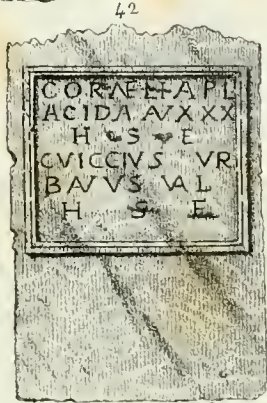 42
CORNELIA PL
ACIDA AVXXX
H S E
CVICCIVS VR
BAVVS VAL
H S E